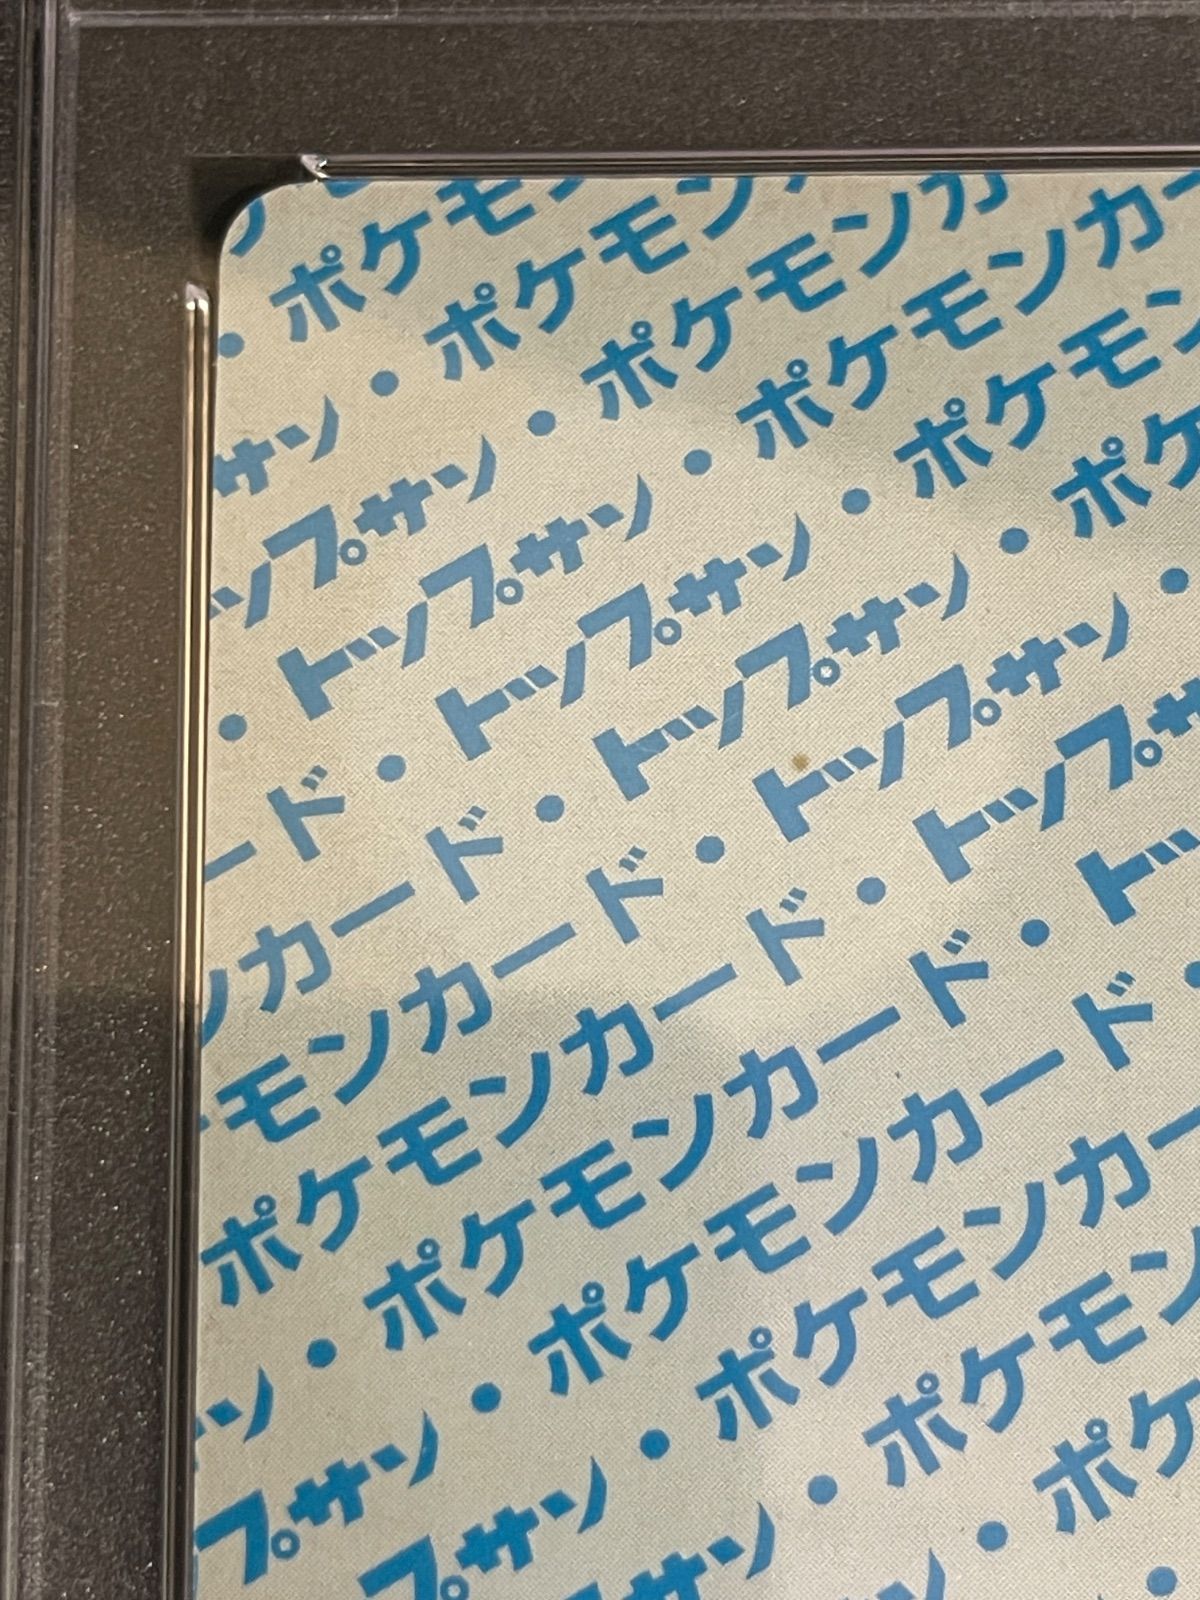 ・ポケモ
サン・ポケモン
ップサン・ポケモンカ
・トップサン・ポケモンカー
ード・トップサン・ポケモン
ンカード・トップサン・ポケ
モンカード・トップサン・
ポケモンカード・トップサ
ン・ポケモンカード・トッ
プサン・ポケモンカード・
プサン・ポケモンカー
サン・ポケモン
ン・ポケ